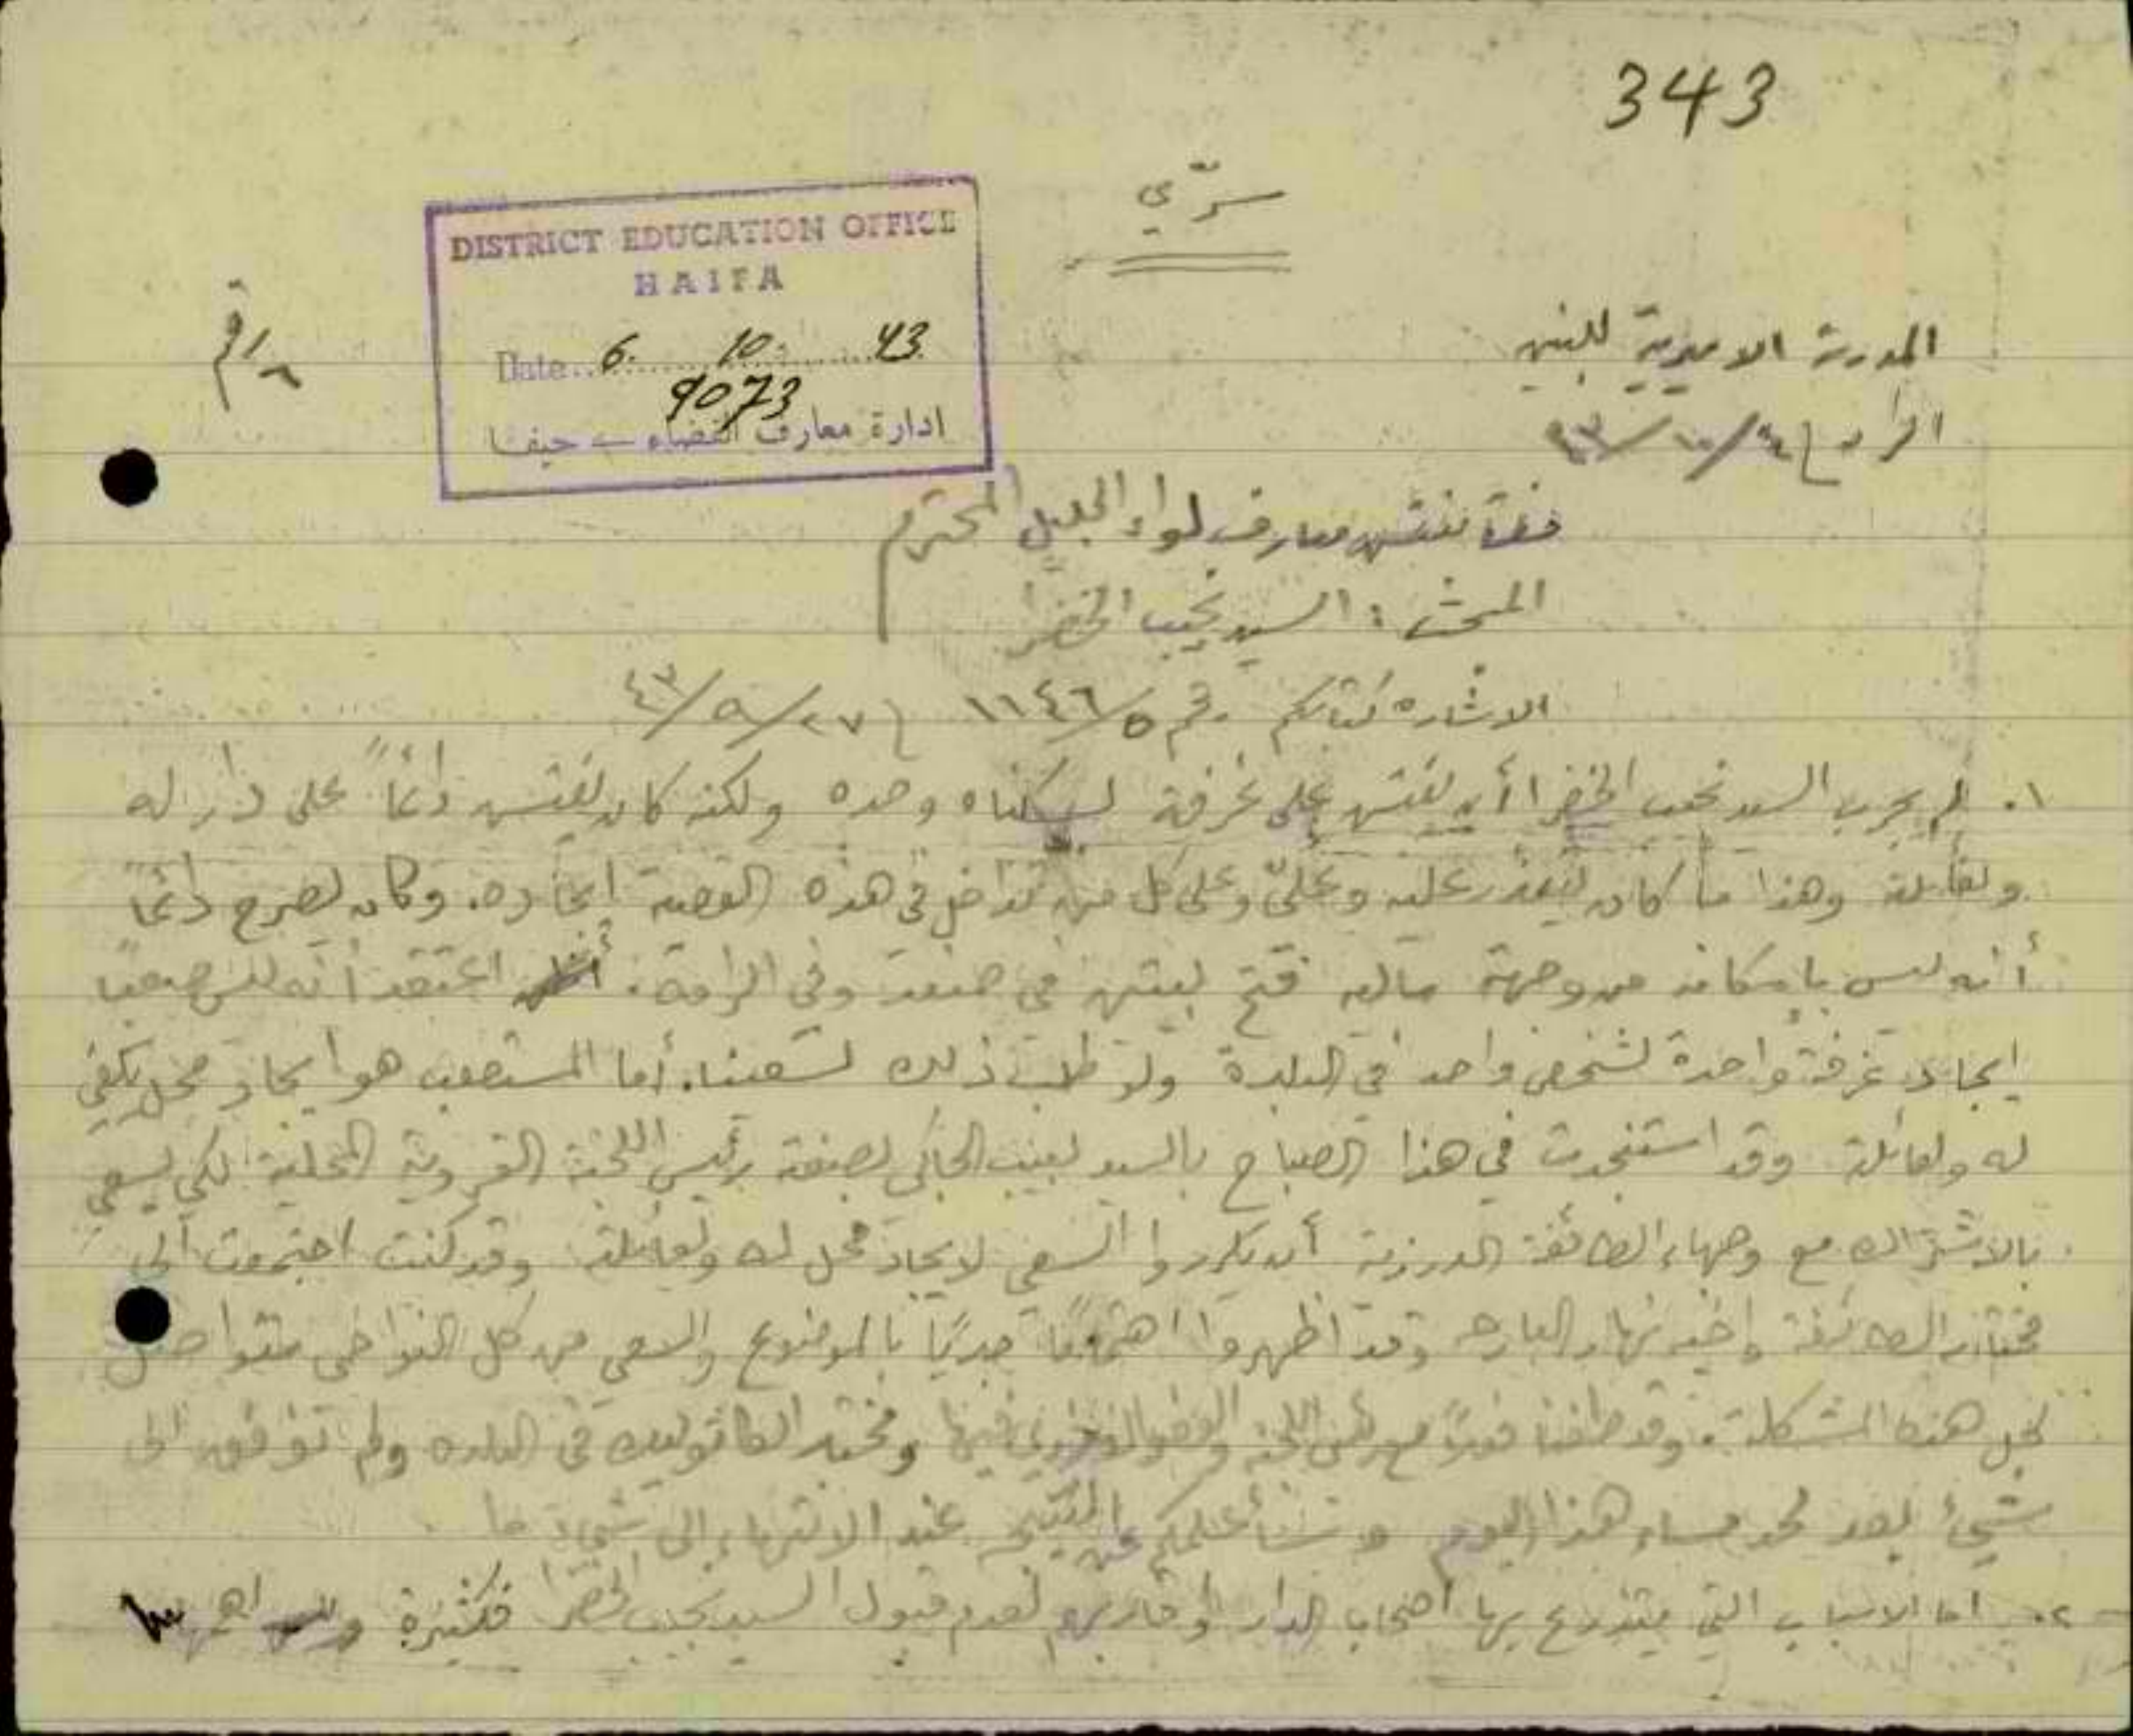 343
سرّي
DISTRICT EDUCATION OFFICE
HAIFA
Date.. 6. 10. 43
9073
ادارة معارف القضاء - حيفا
المدرسة الاميرية للبنين
الرامه
مفتش معارف لواء الجليل المحترم
المبحث : السيد نجيب الخضرا
الاشاره كتابكم رقم ١١٤٦/٥ ٤٣/٩/٢٧
١. لم يجرب السيد نجيب الخضرا أن يفتش على غرفة لسكناه وحده ولكنه كان يفتش دائماً على دار له
ولعائلته وهذا ما كان يتعذر عليه وعليّ وعلى كل من تداخل في هذه القضية إيجاده. وكان يصرح دائماً
أنه ليس بإمكانه من وجهة ماليه فتح بيتين في صفد وفي الرامة. اعتقد أنه ليس صعباً
ايجاد غرفة واحدة لشخص واحد في البلدة ولو طلب ذلك لسعينا. أما المستصعب هو ايجاد محل يكفي
له ولعائلته وقد استنجدت في هذا الصباح بالسيد لبيب بصفته رئيس اللجنة القروية المحلية لكي يسعى
بالاشتراك مع وجهاء الطائفة الدرزية أن يكرروا السعي لايجاد محل له ولعائلته وقد كنت اجتمعت الى
مختار الطائفة واخيه نهار البارحه وقد اظهروا اهتماماً جدياً بالموضوع والسعي من كل النواحي متواصل
لحل هذه المشكلة. وقد طفنا مع رئيس اللجنة والعضو فيها ومختار الكاثوليك في البلده ولم نوفق الى
شيئ بعد لحد مساء هذا اليوم وسأعلمكم عن النتيجه عند الانتهاء إلى شيئ ما
٢. اما الاسباب التي يتذرع بها اصحاب الدار لعدم قبول السيد نجيب الخضرا فكثيرة اهمها